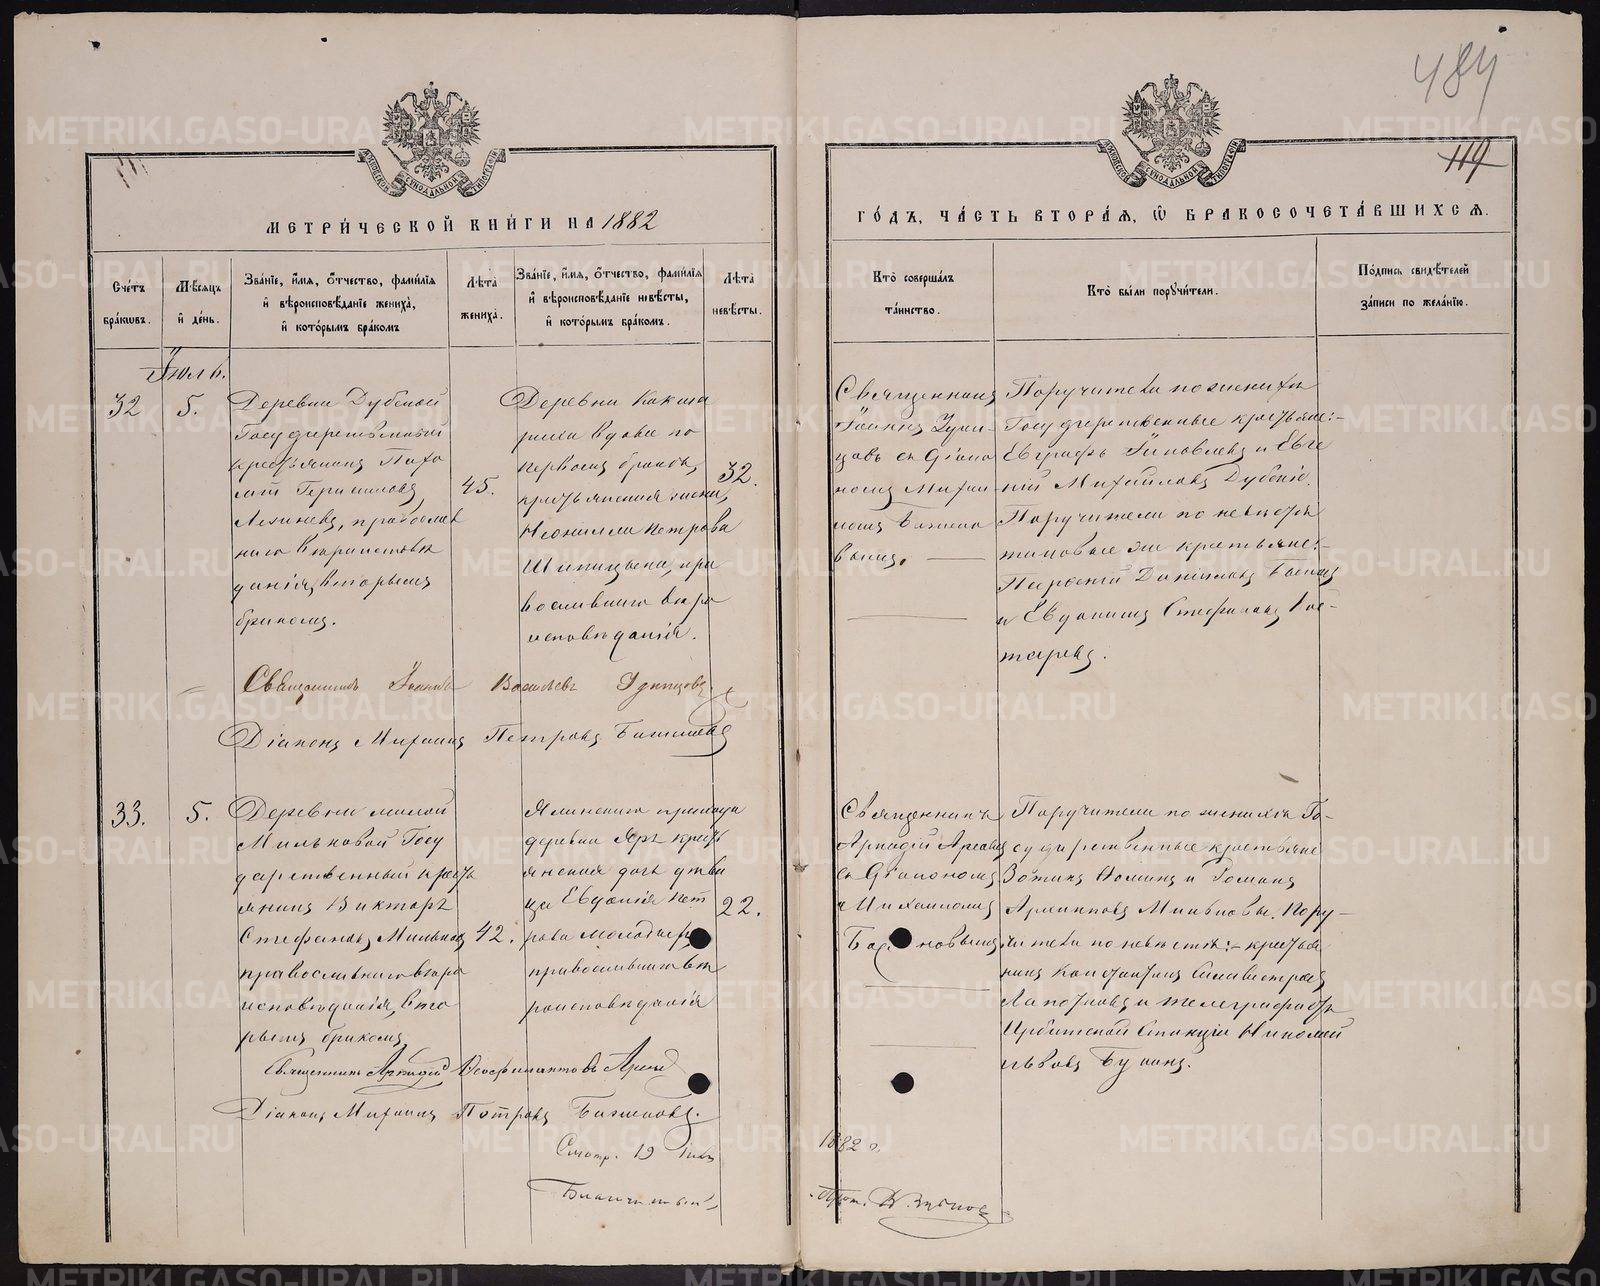 484
119
МЕТРИЧЕСКОЙ КНИГИ НА 1882
ГОДЪ, ЧАСТЬ ВТОРАЯ, Ѿ БРАКОСОЧЕТАВШИХСЯ.
Счетъ браковъ.
Мѣсяцъ и день.
Званіе, имя, отчество, фамилія и вѣроисповѣданіе жениха, и которымъ бракомъ
Лѣта жениха.
Званіе, имя, отчество, фамилія и вѣроисповѣданіе невѣсты, и которымъ бракомъ.
Лѣта невѣсты.
Кто совершалъ таинство.
Кто были поручители.
Подпись свидѣтелей записи по желанію.
Іюль.
32
5.
Деревни Дубской
Государственный
крестьянинъ
православ
наго вѣроисповѣ
данія, вторымъ
бракомъ.
45.
Деревни
вдова по
первомъ бракѣ,
крестьянская жена,
Неонилла Петрова
Шипицына, пра
вославнаго вѣро
исповѣданія.
32.
Священникъ
Іоаннъ
съ Діако
номъ Михаи
ломъ Бажено
вымъ.
Поручители по женихѣ
Государственные крестьяне:-
Евграфъ Яковлевъ и Евге
ній Михайловъ Дубскіе.
Поручители по невѣстѣ
таковые же крестьяне:-
Даниловъ
и Евдокимъ Стефановъ
Священникъ Іоаннъ Васильевъ Удинцовъ
Діаконъ Михаилъ Петровъ Баженовъ
33.
5.
Деревни малой
Мильковой Госу
дарственный кресть
янинъ Викторъ
Стефановъ Мильковъ
православнаго вѣро
исповѣданія, вто
рымъ бракомъ
42.
прихода
деревни Яръ кресть
янская дочь дѣви
ца Евдокія Пет
рова
православнаго вѣ
роисповѣданія
22.
Священникъ
Аркадій
съ Діакономъ
Михаиломъ
Баженовымъ
Поручители по женихѣ Го-
сударственные крестьяне
Зотикъ Ѳоминъ и Романъ
Архиповъ Мильковы. Пору-
чители по невѣстѣ:- крестья
нинъ Константинъ Силивестровъ
Лапотковъ, и телеграфистъ
Ирбитской Станціи Николай
Львовъ Бунинъ.
Священникъ Аркадій
Діаконъ Михаилъ Петровъ Баженовъ.
Смотр. 19 Іюля 1882 г.
Благочинный,
Прот.
METRIKI.GASO-URAL.RU